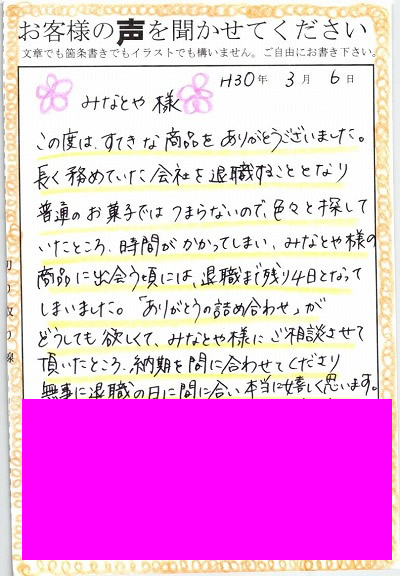 お客様の声を聞かせてください
文章でも箇条書きでもイラストでも構いません。ご自由にお書き下さい。
H30年 3月 6日
みなとや様
この度は、すてきな商品をありがとうございました。
長く務めていた会社を退職することとなり
普通のお菓子ではつまらないので、色々と探して
いたところ、時間がかかってしまい、みなとや様の
商品に出会う頃には、退職まで残り4日となって
しまいました。「ありがとうの詰め合わせ」が
どうしても欲しくて、みなとや様にご相談させて
頂いたところ、納期を間に合わせてくださり
無事に退職の日に間に合い本当に嬉しく思います。
切り取り線